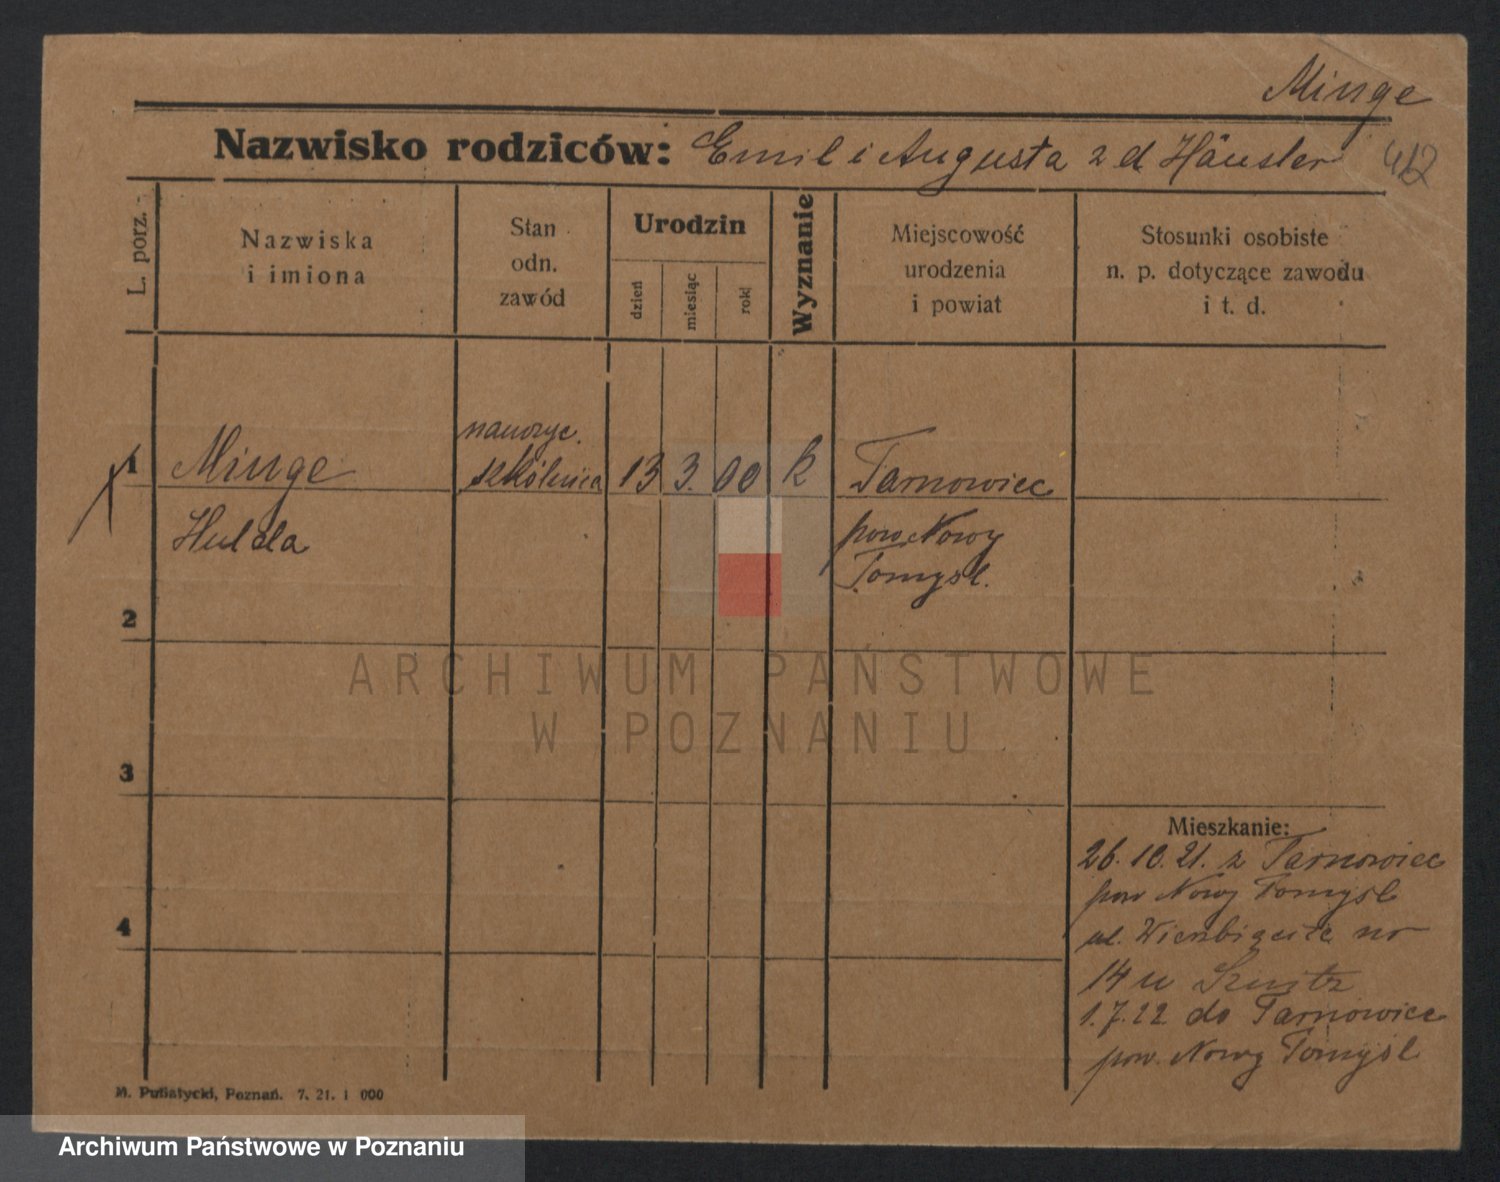 Minge
Nazwisko rodziców: Emil i Augusta z d Häusler 412
L. porz.
Nazwiska
i imiona
Stan
odn.
zawód
Urodzin
dzień
miesiąc
rok
Wyznanie
Miejscowość
urodzenia
i powiat
Stosunki osobiste
n. p. dotyczące zawodu
i t. d.
nauczyc.
1 Minge szkólnica 13 3. 00 k Tarnowiec
Hulda pow. Nowy
Tomyśl.
2
ARCHIWUM PAŃSTWOWE
W POZNANIU
3
Mieszkanie:
26. 10. 21. z Tarnowiec
pow Nowy Tomyśl
4
ul. no
14 u
1. 7. 22 do Tarnowiec
pow. Nowy Tomyśl
M. Putiatycki, Poznań. 7. 21. 1 000
Archiwum Państwowe w Poznaniu